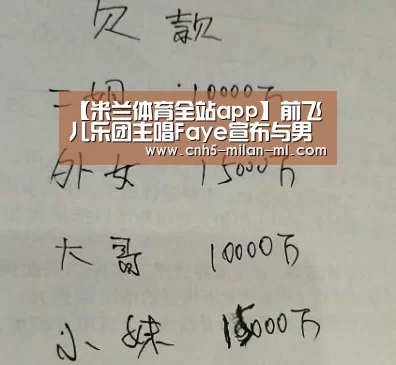 欠款
二姐 10000万
【米兰体育全站app】前飞
儿乐团主唱Faye宣布与男
www.cnh5-milan-ml.com
外女 15000万
大哥 10000万
小妹 15000万